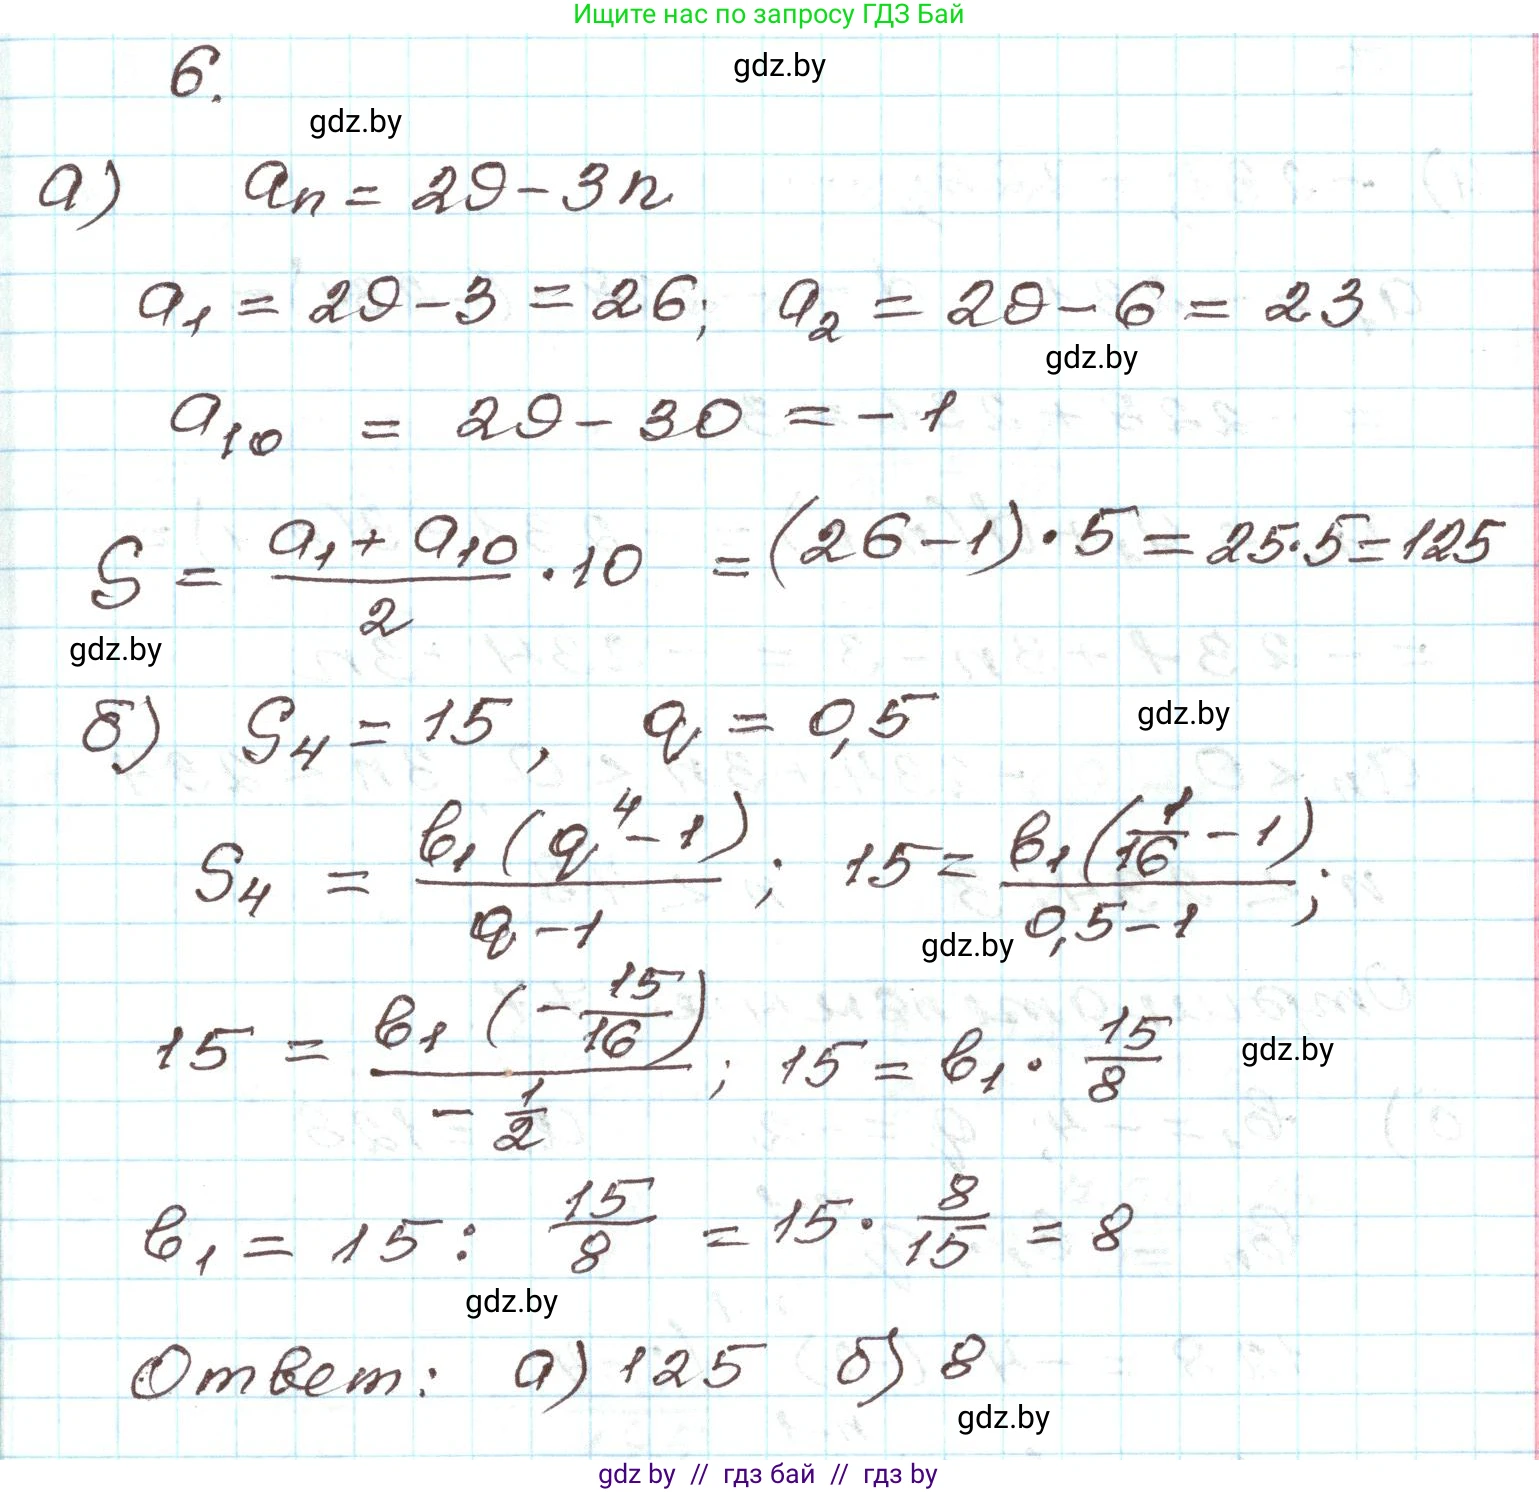 Ищите нас по запросу ГДЗ Бай
6.
gdz.by
gdz.by
а) aₙ = 29 - 3n
a₁ = 29 - 3 = 26; a₂ = 29 - 6 = 23
gdz.by
a₁₀ = 29 - 30 = -1
S = (a₁ + a₁₀)/2 · 10 = (26 - 1) · 5 = 25·5 = 125
gdz.by
б) S₄ = 15, q = 0,5
gdz.by
S₄ = b₁(q⁴ - 1)/(q - 1); 15 = b₁(1/16 - 1)/(0,5 - 1);
gdz.by
15 = b₁(-15/16)/(-1/2); 15 = b₁ · 15/8
gdz.by
b₁ = 15 : 15/8 = 15 · 8/15 = 8
gdz.by
Ответ: а) 125 б) 8
gdz.by
gdz by // гдз бай // гдз by